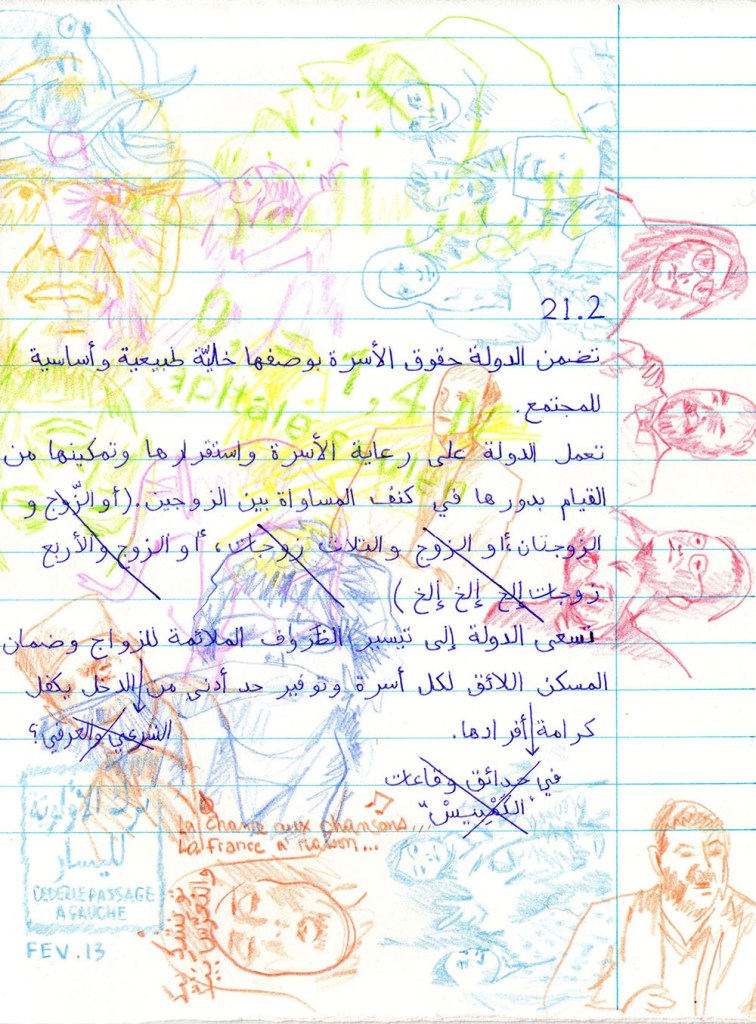 21.2
تضمن الدولة حقوق الأسرة بوصفها خليّة طبيعية وأساسية
للمجتمع.
تعمل الدولة على رعاية الأسرة واستقرارها وتمكينها من
القيام بدورها في كنف المساواة بين الزوجين. (أو الزّوج و
الزوجتان، أو الزوج والثلاث زوجات، أو الزوج والأربع
زوجات إلخ إلخ إلخ)
تسعى الدولة إلى تيسير الظّروف الملائمة للزواج وضمان
المسكن اللائق لكل أسرة وتوفير حد أدنى من الدخل يكفل
كرامة أفرادها.
الشرعي والعرفي؟
في حدائق وقاعات
"الكَمْبِينِسْ"
La chance aux chansons...
La France a raison...
ترك الأولوية
لليسار
CEDER LE PASSAGE
A GAUCHE
FEV. 13